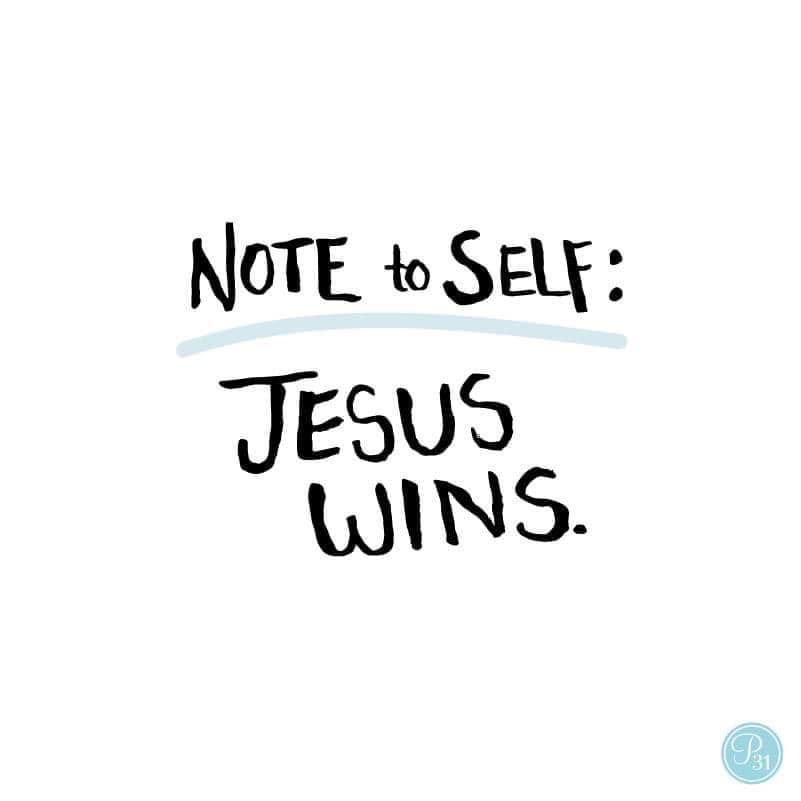 NOTE to SELF:
JESUS
WINS.
P31